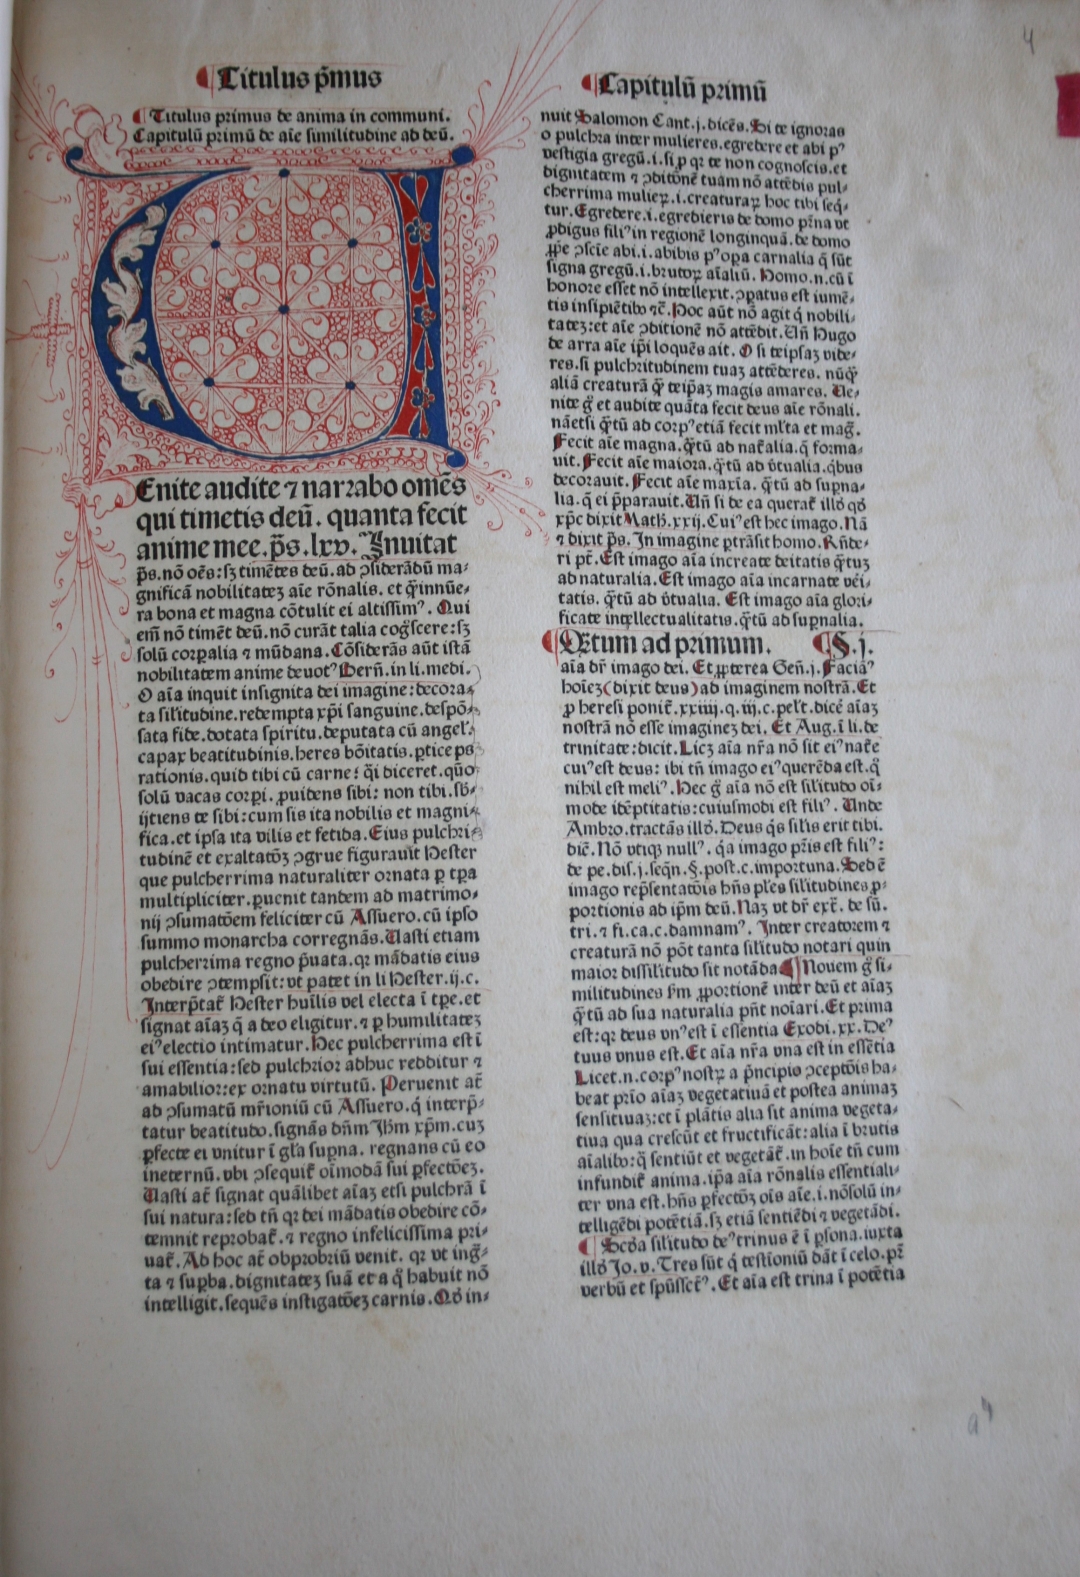 Titulus p̄mus
Capitulū primū
Titulus primus de anima in communi.
Capitulū primū de aīe similitudine ad deū.
Enite audite ⁊ narrabo om̄es
qui timetis deū. quanta fecit
anime mee. p̄s. lxv. Inuitat
p̄s. nō oēs: sꝫ timētes deū. ad ꝯsiderādū ma⸗
gnificā nobilitateꝫ aīe rōnalis. et q̄ innūe⸗
ra bona et magna cōtulit ei altissimꝰ. Qui
eīn nō timēt deū. nō curāt talia cog̊scere: sꝫ
solū corꝑalia ⁊ mūdana. Cōsiderās aūt istā
nobilitatem anime deuotꝰ Bern̄. in li. medi.
O aīa inquit insignita dei imagine: decora⸗
ta sil̄itudine. redempta xp̄i sanguine. despō⸗
sata fide. dotata spiritu. deputata cū angel̄.
capax beatitudinis. heres bōitatis. ꝑticeps
rationis. quid tibi cū carne? q̄i diceret. quō
solū vacas corꝑi. ꝓuidens sibi: non tibi. sb̄⸗
ijciens te sibi: cum sis ita nobilis et magni⸗
fica. et ipsa ita vilis et fetida. Eius pulchri⸗
tudinē et exaltatōꝫ ꝯgrue figurauit Hester
que pulcherrima naturaliter ornata ꝑ tꝑa
multipliciter. ꝑuenit tandem ad matrimo⸗
nij ꝯsumatōem feliciter cū Assuero. cū ipso
summo monarcha corregnās. Uasti etiam
pulcherrima regno p̄uata. qꝛ mādatis eius
obedire ꝯtempsit: vt patet in li Hester. ij. c.
Interp̄tat̄ Hester huīlis vel electa ī tꝑe. et
signat aīaꝫ q̄ a deo eligitur. ⁊ ꝑ humilitateꝫ
eiꝰ electio intimatur. Hec pulcherrima est ī
sui essentia: sed pulchrior adhuc redditur ⁊
amabilior: ex ornatu virtutū. Peruenit at̄
ad ꝯsumatū mr̄ioniū cū Assuero. q̇ interp̄⸗
tatur beatitudo. signās dn̄m Jh̄m xp̄m. cuꝫ
ꝑfecte ei vnitur ī gl̄a suꝑna. regnans cū eo
ineternū. vbi ꝯsequit̄ oīmodā sui ꝑfectōeꝫ.
Uasti at̄ signat quālibet aīaꝫ etsi pulchrā ī
sui natura: sed tn̄ qꝛ dei mādatis obedire cō⸗
temnit reprobat̄. ⁊ regno infelicissima pri⸗
uat̄. Ad hoc at̄ obprobriū venit. qꝛ vt ing̊⸗
ta ⁊ suꝑba. dignitateꝫ suā et a q̊ habuit nō
intelligit. sequēs instigatōeꝫ carnis. Qd̄ in⸗
nuit Salomon Cant. j. dicēs. Si te ignoras
o pulchra inter mulieres. egredere et abi pꝰ
vestigia gregū. i. si ꝓ qꝛ te non cognoscis. et
dignitatem ⁊ ꝯditōnē tuam nō attēdis pul⸗
cherrima mulieꝝ. i. creaturaꝝ hoc tibi seq̄⸗
tur. Egredere. i. egredieris de domo pr̄na vt
ꝓdigus filiꝰ in regionē longinquā. de domo
ꝓpe ꝯscīe abi. i. abibis pꝰ oꝑa carnalia q̄ sūt
signa gregū. i. brutoꝝ aīaliū. Homo. n. cū ī
honore esset nō intellexit. ꝯparatus est iumē⸗
tis insipiētibꝰ ⁊c̄. Hoc aūt nō agit q̇ nobili⸗
tateꝫ: et aīe ꝯditionē nō attēdit. Un̄ Hugo
de arra aīe ip̄i loquēs ait. O si teipsaꝫ vide⸗
res. si pulchritudinem tuaꝫ attēderes. nūq̄
aliā creaturā q̄ teip̄aꝫ magis amares. Ue⸗
nite g̊ et audite quāta fecit deus aīe rōnali.
nāetsi q̄tū ad corpꝰ etiā fecit ml̄ta et mag̊.
Fecit aīe magna. q̄tū ad nat̄alia. q̄ forma⸗
uit. Fecit aīe maiora. q̄tū ad v̄tualia. q̇bus
decorauit. Fecit aīe maxīa. q̄tū ad suꝑna⸗
lia. q̄ ei p̄parauit. Un̄ si de ea querat̄ illd̄ qd̄
xp̄c dixit Math. xxij. Cuiꝰ est hec imago. Nā
⁊ dixit p̄s. In imagine ꝑtrāsit homo. Rn̄de⸗
ri pt̄. Est imago aīa increate deitatis q̄tuꝫ
ad naturalia. Est imago aīa incarnate ve̅i⸗
tatis. q̄tū ad v̄tualia. Est imago aīa glori⸗
ficate intellectualitatis. q̄tū ad suꝑnalia.
Q̄tum ad primum. §. j.
aīa dr̄ imago dei. Et ꝓpterea Gen̄. j. Faciāꝰ
hoīeꝫ (dixit deus) ad imaginem nostrā. Et
ꝓ heresi ponit̄. xxiiij. q. iij. c. pel̄t. dicē aīaꝫ
nostrā nō esse imagineꝫ dei. Et Aug. ī li. de
trinitate: dicit. Licꝫ aīa nr̄a nō sit eiꝰ nat̄e
cuiꝰ est deus: ibi tn̄ imago eiꝰ querēda est. q̊
nihil est meliꝰ. Hec g̊ aīa nō est sil̄itudo oī⸗
mode idēptitatis: cuiusmodi est filiꝰ. Unde
Ambro. tractās illd̄. Deus q̇s sil̄is erit tibi.
dic̄. Nō vtiqꝫ nullꝰ. q̇a imago pr̄is est filiꝰ:
de pe. dis. j. seqn̄. §. post. c. importuna. Sed ē
imago rep̄sentatōis hn̄s ples sil̄itudines ꝓ⸗
portionis ad ip̄m deū. Naꝫ vt dr̄ ext̄. de sū.
tri. ⁊ fi. ca. c. damnamꝰ. Inter creatorem ⁊
creaturā nō pōt tanta sil̄itudo notari quin
maior dissil̄itudo sit notāda Nouem g̊ si⸗
militudines s̄m ꝓportionē inter deū et aīaꝫ
q̄tū ad sua naturalia pn̄t noīari. Et prima
est: qꝛ deus vnꝰ est ī essentia Exodi. xx. Deꝰ
tuus vnus est. Et aīa nr̄a vna est in essētia
Licet. n. corpꝰ nostꝝ a p̄ncipio ꝯceptōis ha⸗
beat prīo aīaꝫ vegetatiuā et postea animaꝫ
sensitiuaꝫ: et ī plātis alia sit anima vegeta⸗
tiua qua crescūt et fructificāt: alia ī brutis
aīalibꝰ: q̄ sentiūt et vegetāt̄. in hoīe tn̄ cum
infundit̄ anima. ip̄a aīa rōnalis essentiali⸗
ter vna est. hn̄s ꝑfectōꝫ oīs aīe. i. nōsolū in⸗
telligēdi potētiā. sꝫ etiā sentiēdi ⁊ vegetādi.
Scd̄a sil̄itudo deꝰ trinus ē ī ꝑsona. iuxta
illd̄ Jo. v. Tres sūt q̇ testioniū dāt ī celo. pr̄
verbū et spūssct̄ꝰ. Et aīa est trina ī potētia
4
a4